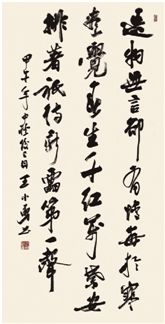 造物無言卻有情每於寒
盡覺春生千紅萬紫安
排著祇待新雷第一聲
甲午年中秋 日王小